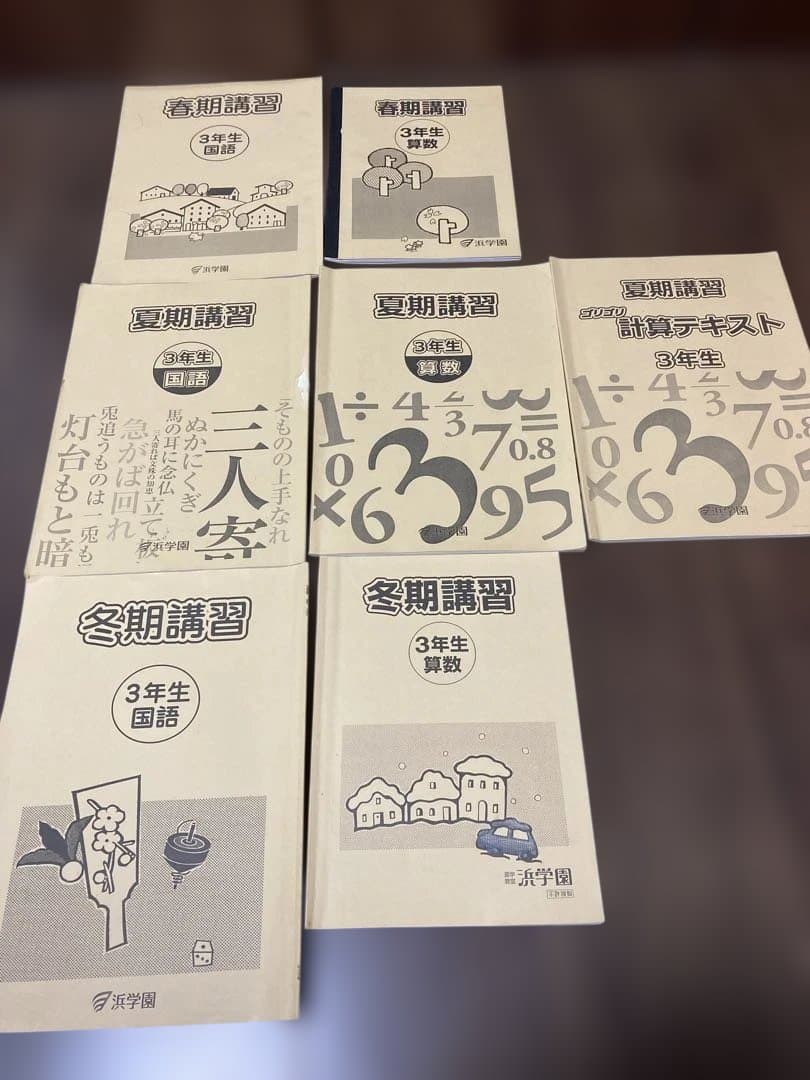 春期講習
3年生
国語
浜学園
春期講習
3年生
算数
浜学園
夏期講習
3年生
国語
そものの上手なれ
三人寄
三人寄れば文殊の知恵
ぬかにくぎ
馬の耳に念仏
立て板
急がば回れ
兎追うものは一兎も
灯台もと暗
浜学園
夏期講習
3年生
算数
1÷4 2/3
7 0.8 =
0 3
×6 95
浜学園
夏期講習
ゴリゴリ
計算テキスト
3年生
1÷4 2/3
7 0.8
0 3
×6 95
浜学園
冬期講習
3年生
国語
浜学園
冬期講習
3年生
算数
進学
教室
浜学園
不許複製